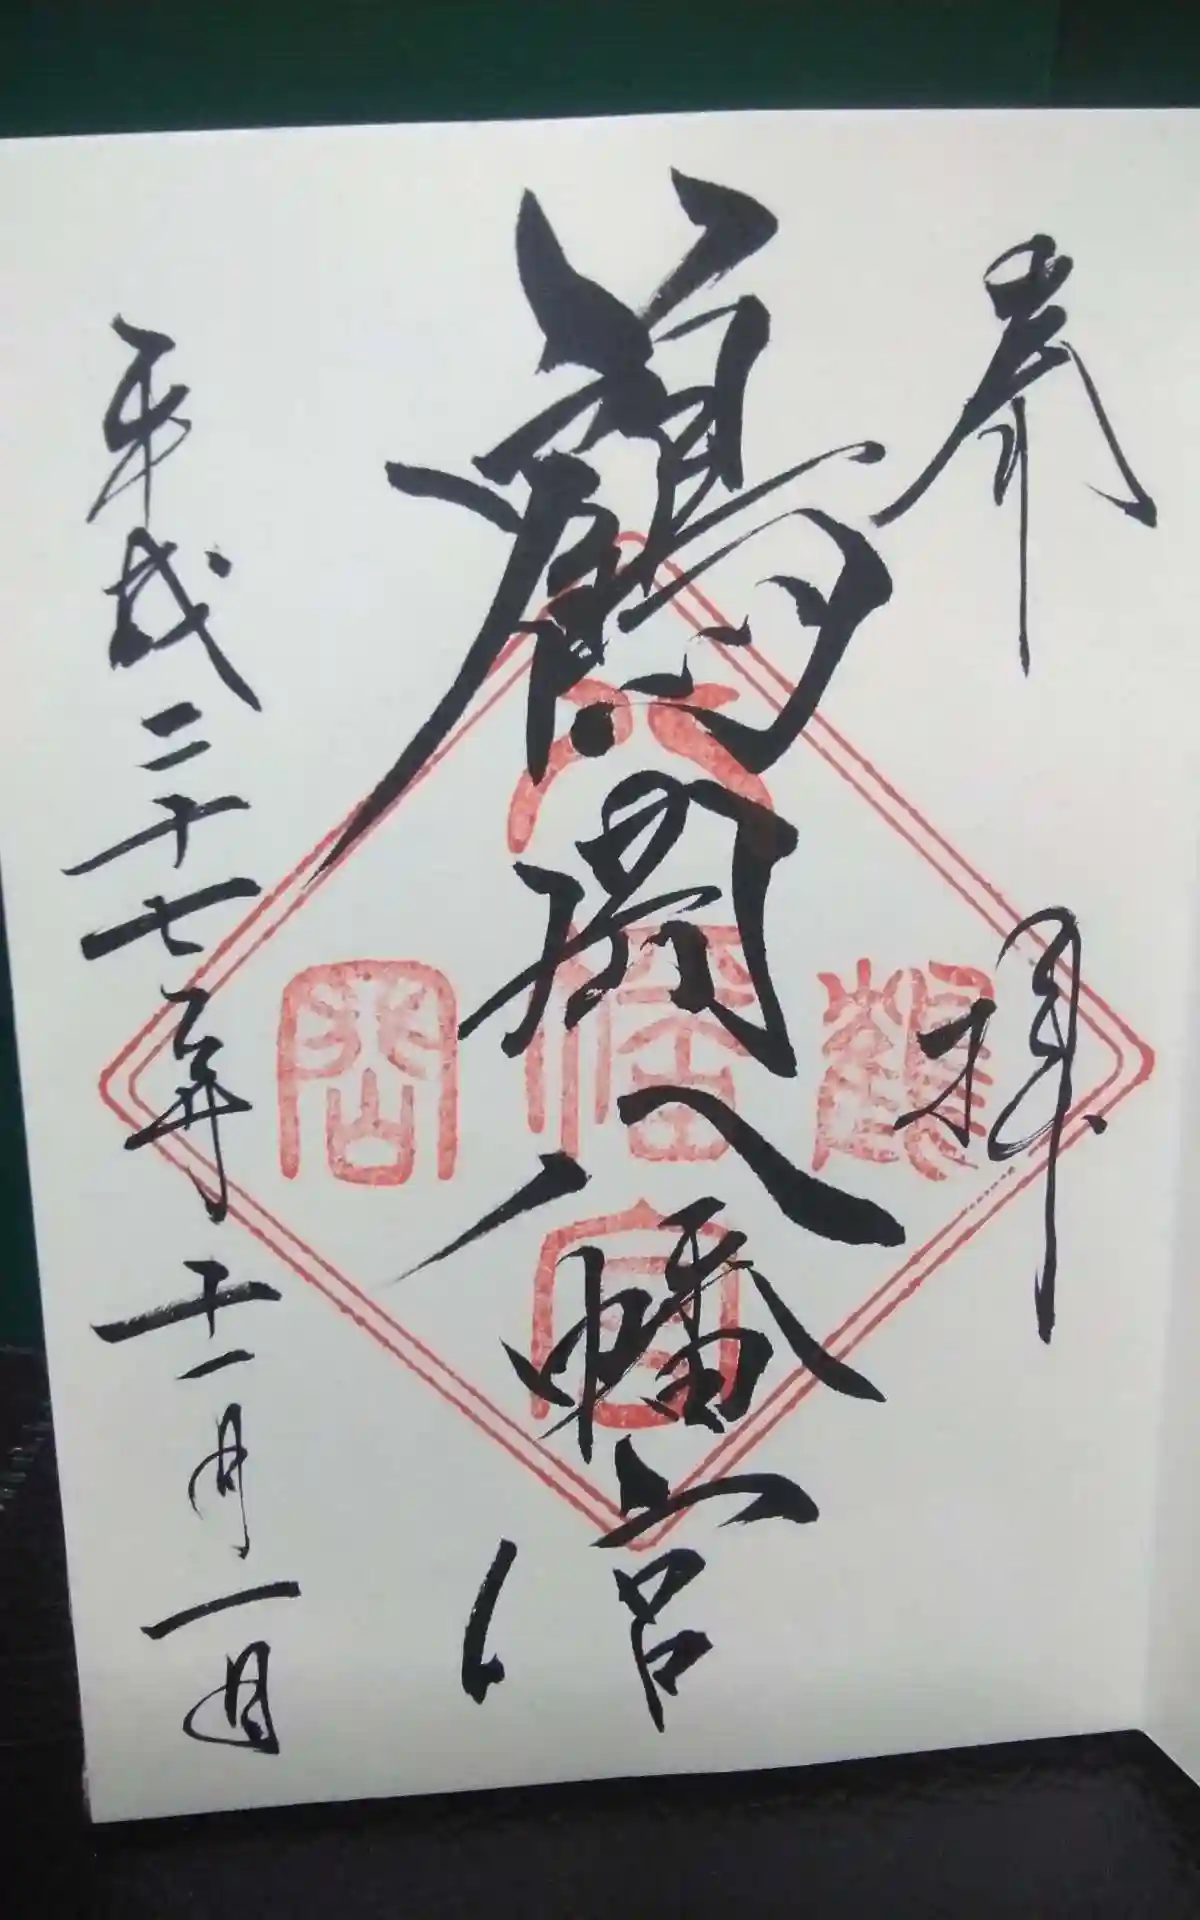 奉拝
鶴岡八幡宮
平成二十七年十一月一日
八
鶴
幡
岡
宮